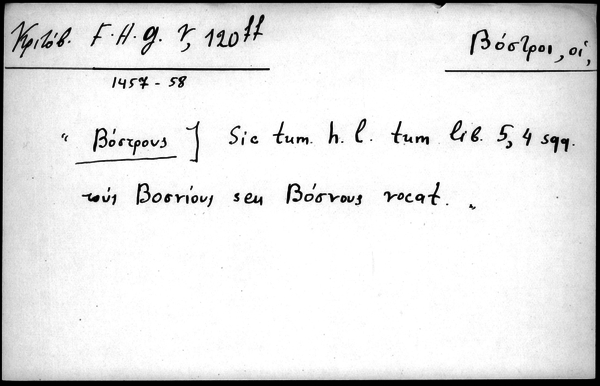 Κριτόβ. F.H.g. V, 120 ff
Βόστροι, οἱ,
1457 - 58
" Βόστρους ] Sic tum h. l. tum lib. 5, 4 sqq.
τοὺς Βοσνίους seu Βόσνους vocat. "